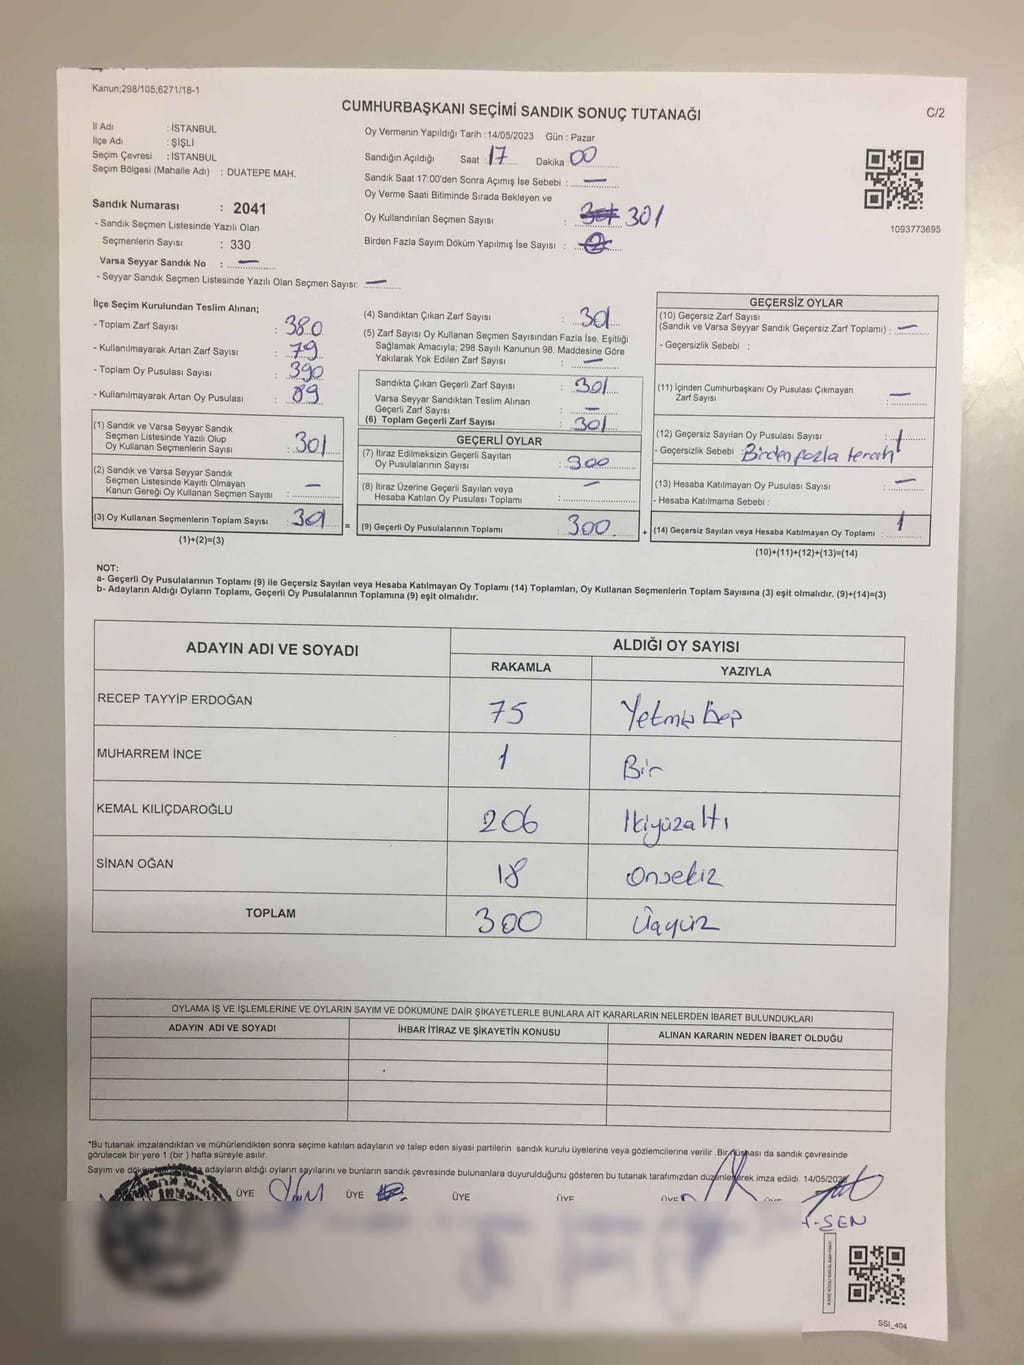 Kanun;298/105;6271/18-1
CUMHURBAŞKANI SEÇİMİ SANDIK SONUÇ TUTANAĞI
C/2
İl Adı : İSTANBUL
İlçe Adı : ŞİŞLİ
Seçim Çevresi : İSTANBUL
Seçim Bölgesi (Mahalle Adı) : DUATEPE MAH.
Sandık Numarası : 2041
- Sandık Seçmen Listesinde Yazılı Olan
Seçmenlerin Sayısı : 330
Varsa Seyyar Sandık No : —
- Seyyar Sandık Seçmen Listesinde Yazılı Olan Seçmen Sayısı: —
Oy Vermenin Yapıldığı Tarih :14/05/2023 Gün : Pazar
Sandığın Açıldığı Saat :17 Dakika :00
Sandık Saat 17:00'den Sonra Açımış İse Sebebi : —
Oy Verme Saati Bitiminde Sırada Bekleyen ve
Oy Kullandırılan Seçmen Sayısı : 301
Birden Fazla Sayım Döküm Yapılmış İse Sayısı :
1093773695
İlçe Seçim Kurulundan Teslim Alınan;
- Toplam Zarf Sayısı : 380
- Kullanılmayarak Artan Zarf Sayısı : 79
- Toplam Oy Pusulası Sayısı : 390
- Kullanılmayarak Artan Oy Pusulası : 89
(1) Sandık ve Varsa Seyyar Sandık
Seçmen Listesinde Yazılı Olup
Oy Kullanan Seçmenlerin Sayısı : 301
(2) Sandık ve Varsa Seyyar Sandık
Seçmen Listesinde Kayıtlı Olmayan
Kanun Gereği Oy Kullanan Seçmen Sayısı : —
(3) Oy Kullanan Seçmenlerin Toplam Sayısı : 301
(1)+(2)=(3)
(4) Sandıktan Çıkan Zarf Sayısı : 301
(5) Zarf Sayısı Oy Kullanan Seçmen Sayısından Fazla İse, Eşitliği
Sağlamak Amacıyla; 298 Sayılı Kanunun 98. Maddesine Göre
Yakılarak Yok Edilen Zarf Sayısı : —
Sandıkta Çıkan Geçerli Zarf Sayısı : 301
Varsa Seyyar Sandıktan Teslim Alınan
Geçerli Zarf Sayısı : —
(6) Toplam Geçerli Zarf Sayısı : 301
GEÇERLİ OYLAR
(7) İtiraz Edilmeksizin Geçerli Sayılan
Oy Pusulalarının Sayısı : 300
(8) İtiraz Üzerine Geçerli Sayılan veya
Hesaba Katılan Oy Pusulası Toplamı : —
= (9) Geçerli Oy Pusulalarının Toplamı : 300
GEÇERSİZ OYLAR
(10) Geçersiz Zarf Sayısı
(Sandık ve Varsa Seyyar Sandık Geçersiz Zarf Toplamı) : —
- Geçersizlik Sebebi :
(11) İçinden Cumhurbaşkanı Oy Pusulası Çıkmayan
Zarf Sayısı : —
(12) Geçersiz Sayılan Oy Pusulası Sayısı : 1
- Geçersizlik Sebebi : Birden fazla tercih
(13) Hesaba Katılmayan Oy Pusulası Sayısı : —
- Hesaba Katılmama Sebebi :
+ (14) Geçersiz Sayılan veya Hesaba Katılmayan Oy Toplamı : 1
(10)+(11)+(12)+(13)=(14)
NOT:
a- Geçerli Oy Pusulalarının Toplamı (9) ile Geçersiz Sayılan veya Hesaba Katılmayan Oy Toplamı (14) Toplamları, Oy Kullanan Seçmenlerin Toplam Sayısına (3) eşit olmalıdır. (9)+(14)=(3)
b- Adayların Aldığı Oyların Toplamı, Geçerli Oy Pusulalarının Toplamına (9) eşit olmalıdır.
ADAYIN ADI VE SOYADI ALDIĞI OY SAYISI
RAKAMLA YAZIYLA
RECEP TAYYİP ERDOĞAN 75 Yetmiş Beş
MUHARREM İNCE 1 Bir
KEMAL KILIÇDAROĞLU 206 İkiyüzaltı
SİNAN OĞAN 18 Onsekiz
TOPLAM 300 Üçyüz
OYLAMA İŞ VE İŞLEMLERİNE VE OYLARIN SAYIM VE DÖKÜMÜNE DAİR ŞİKAYETLERLE BUNLARA AİT KARARLARIN NELERDEN İBARET BULUNDUKLARI
ADAYIN ADI VE SOYADI İHBAR İTİRAZ VE ŞİKAYETİN KONUSU ALINAN KARARIN NEDEN İBARET OLDUĞU
*Bu tutanak imzalandıktan ve mühürlendikten sonra seçime katılan adayların ve talep eden siyasi partilerin sandık kurulu üyelerine veya gözlemcilerine verilir .Bir nüshası da sandık çevresinde
görülecek bir yere 1 (bir ) hafta süreyle asılır.
Sayım ve adayların aldığı oyların sayılarını ve bunların sandık çevresinde bulunanlara duyurulduğunu gösteren bu tutanak tarafımızdan düzenlenerek imza edildi. 14/05/2023
ÜYE ÜYE ÜYE ÜYE ÜYE
SSI_404